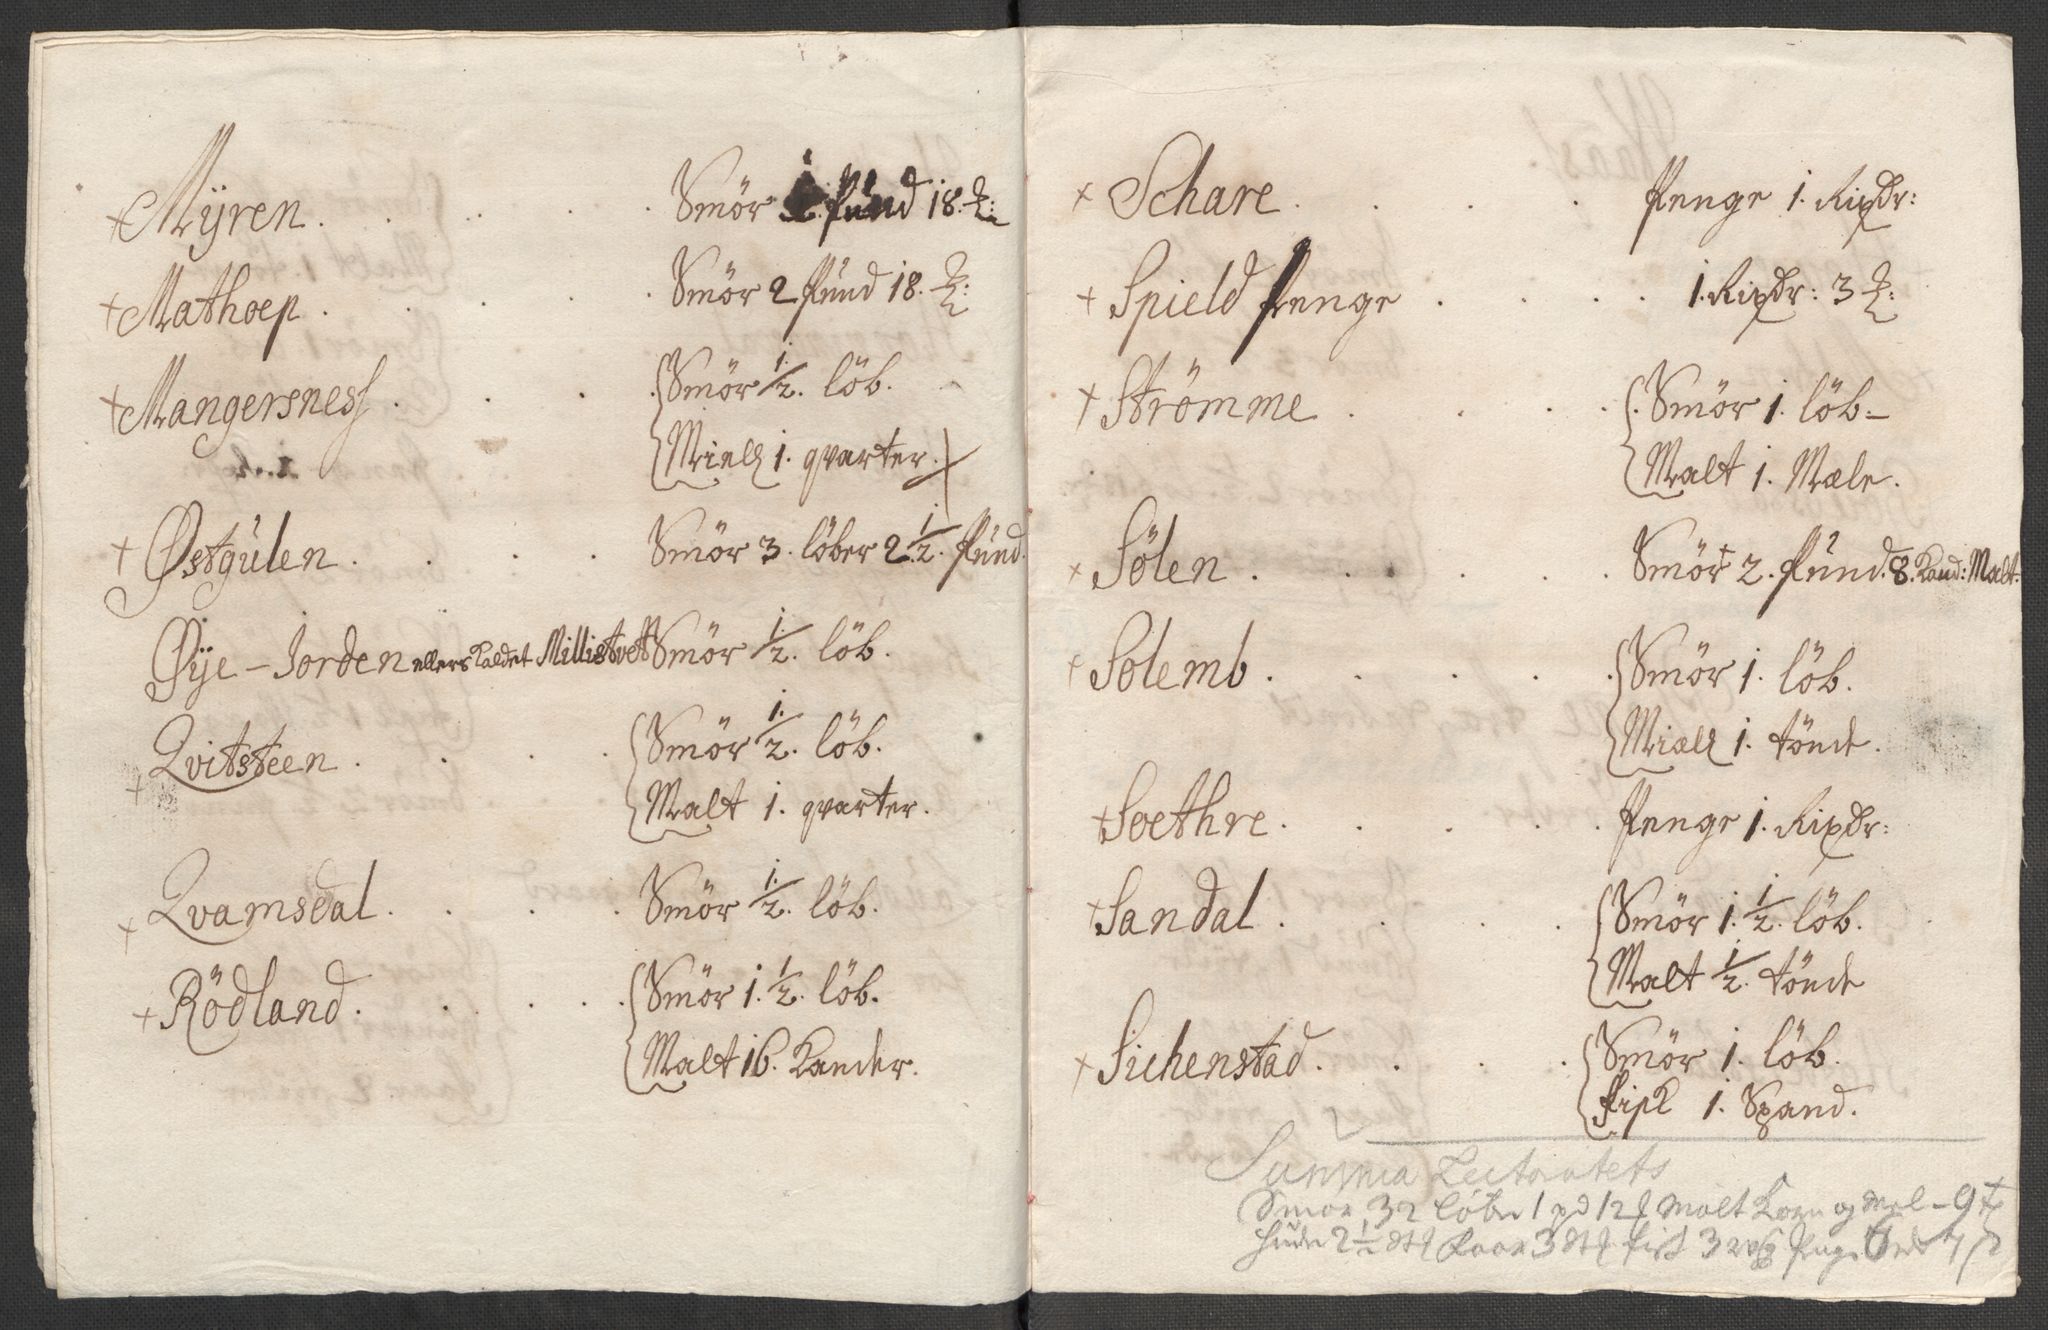 + Mÿren . . . . . Smör Pund 18. ℔:
+ Mathoep . . . . Smör 2 Pund 18. ℔:
+ Mangersness . . . Smör 1/2. löb.
Miell 1. qvarter.
+ Østgulen . . . Smör 3. löber 2 1/2. Pund.
Øÿe-Jorden ellers kaldet Millistvet Smör 1/2. löb.
+ Qvitsteen . . . . Smör 1/2. löb.
Malt 1. qvarter.
+ Qvamsdal . . . Smör 1/2. löb.
+ Rödland . . . . Smör 1. 1/2. löb.
Malt 16. Kander.
+ Schare . . . . Penge 1. Rixdr:
+ Spield Penge . . . . 1. Rixdr: 3 ℔:
+ Strömme . . . . Smör 1. löb-
Malt 1. Mæle.
+ Sölen . . . . . Smör 2. Pund. 8. Kand: Malt.
+ Solemb . . . . . Smör 1. löb.
Miæll 1. tönde.
+ Soethre . . . . . Penge 1. Rixdr:
+ Sandal . . . . Smör 1. 1/2. löb.
Malt 1/2. tönde
+ Sichenstad . . . . Smör 1. löb.
Fisk 1. Spand.
Summa
Smör 32 löber 1 pd 12 Malt Korn og Mel - 9
Huder 2 1/2 3 fisk 3